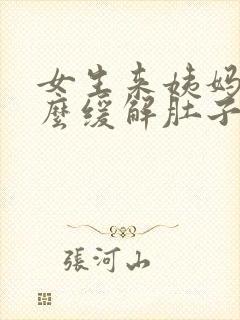 女生来姨妈
麼缓解肚子
張河山